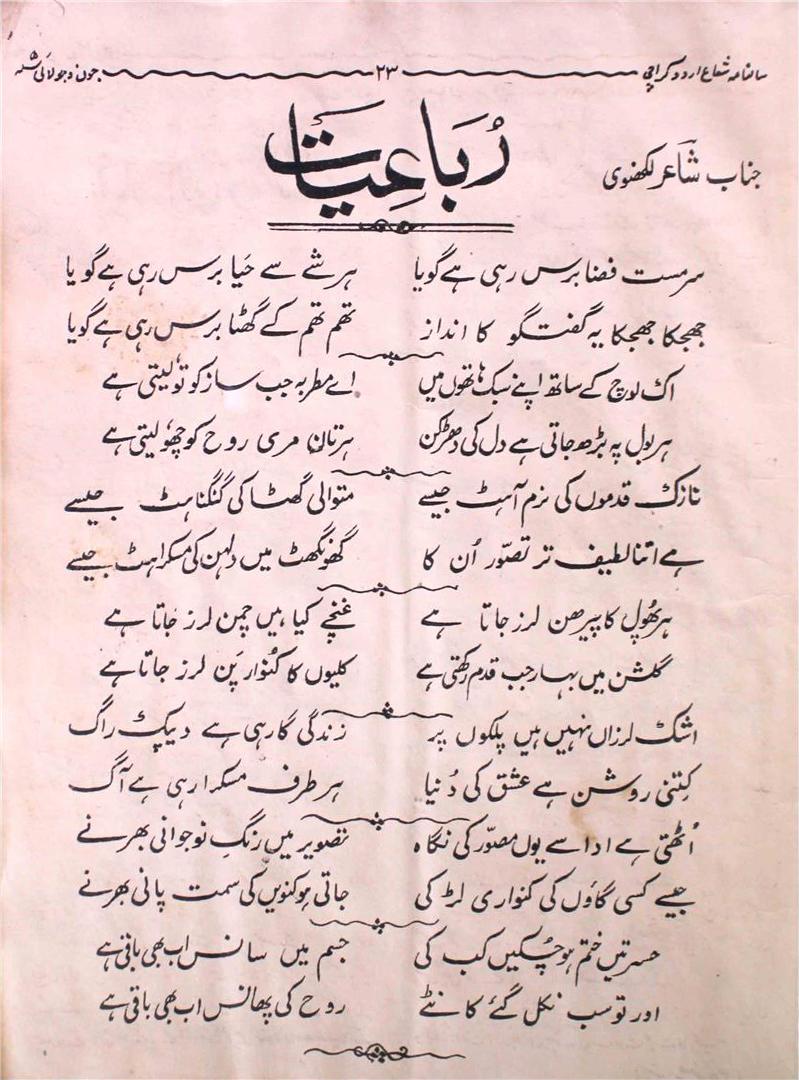 سالنامہ شعاع اردو کراچی ۲۳ جون و جولائی
رُباعیات
جناب شاعر لکھنوی
سرمست فضا برس رہی ہے گویا ہر شے سے حَیا برس رہی ہے گویا
جھجکا جھجکا یہ گفتگو کا انداز تھم تھم کے گھٹا برس رہی ہے گویا
اک لوچ کے ساتھ اپنے سبک ہاتھوں میں اے مطربہ جب ساز کو تو لیتی ہے
ہر بول پہ بڑھ جاتی ہے دل کی دھڑکن ہر تان مری روح کو چھو لیتی ہے
نازک قدموں کی نرم آہٹ جیسے متوالی گھٹا کی گنگناہٹ جیسے
ہے اتنا لطیف تر تصوّر اُن کا گھونگھٹ میں دلہن کی مسکراہٹ جیسے
ہر پھُول کا پیرھن لرز جاتا ہے غنچے کیا ہیں چمن لرز جاتا ہے
گلشن میں بہار جب قدم رکھتی ہے کلیوں کا کنوارپن لرز جاتا ہے
اشک لرزاں نہیں ہیں پلکوں پر زندگی گا رہی ہے دیپک راگ
کِتنی روشن ہے عشق کی دُنیا ہر طرف مسکرا رہی ہے آگ
اُٹھتی ہے ادا سے یوں مصوّر کی نگاہ تصویر میں رنگِ نوجوانی بھرنے
جیسے کسی گاؤں کی کنواری لڑکی جاتی ہو کنویں کی سمت پانی بھرنے
حسرتیں ختم ہو چُکیں کب کی جسم میں سانس اب بھی باقی ہے
اور تو سب نکل گئے کانٹے روح کی پھانس اب بھی باقی ہے